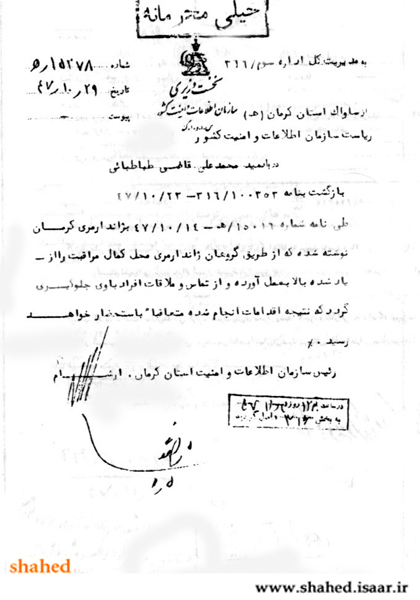 خیلی محرمانه
به مدیریت کل اداره سوم/۳۱۶
نخست وزیری
سازمان اطلاعات و امنیت کشور
شماره ۱۵۲۷۸/ه
تاریخ ۴۷/۱۰/۲۹
پیوست
از ساواک استان کرمان (ه)
ریاست سازمان اطلاعات و امنیت کشور
درباره سید محمدعلی قاضی طباطبائی
بازگشت بنامه ۳۱۶/۱۰۰۳۵۳-۴۷/۱۰/۲۳
طی نامه شماره ۱۵۰۱۶/ه-۴۷/۱۰/۱۴ بژاندارمری کرمان
نوشته شده که از طریق گروهان ژاندارمری محل کمال مراقبت را از -
یاد شده بالا بعمل آورده و از تماس و ملاقات افراد باوی جلوگیری
گردد که نتیجه اقدامات انجام شده متعاقبا" باستحضار خواهد
رسید ٪
رئیس سازمان اطلاعات و امنیت استان کرمان. آرشام
در ساعت
به بخش ۳۱۶
shahed
www.shahed.isaar.ir